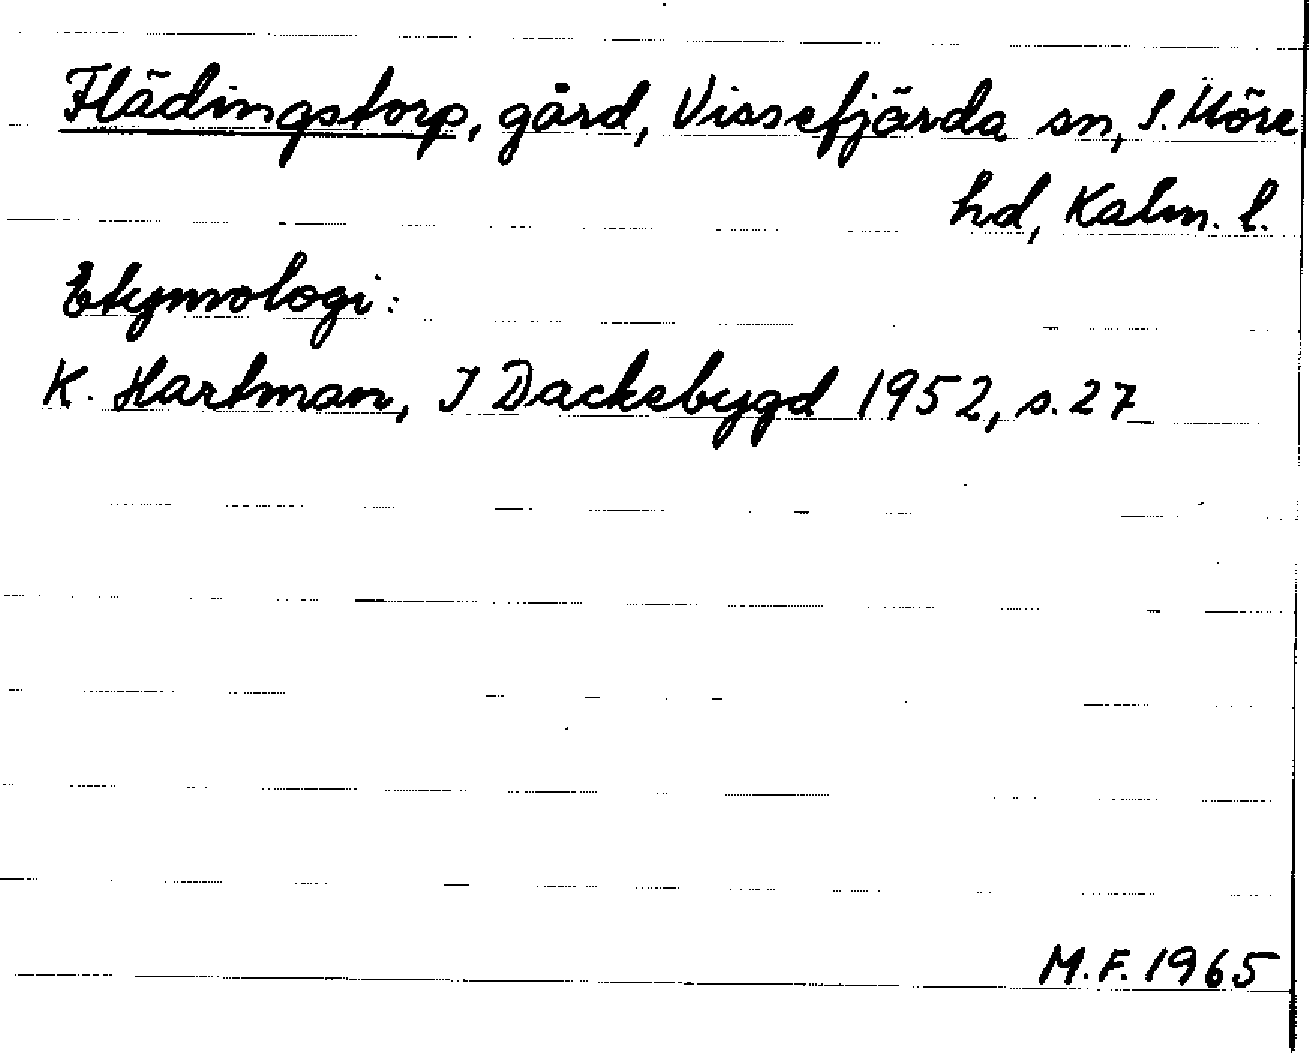 Flädingstorp, gård, Vissefjärda sn, S. Möre
hd, Kalm. l.
Etymologi:
K. Hartman, I Dackebygd 1952, s. 27
M.F. 1965